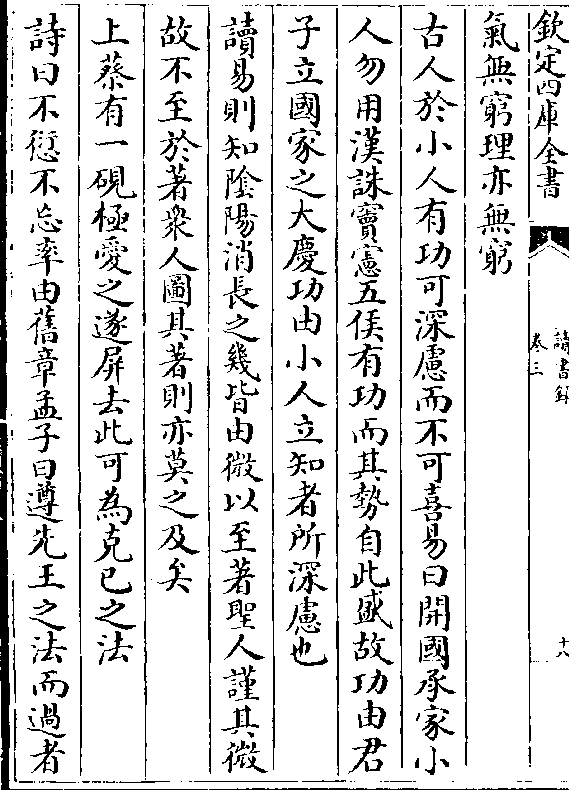 欽定四庫全書
讀書録
卷三
十八
氣無窮理亦無窮
古人於小人有功可深慮而不可喜易曰開國承家小
人勿用漢誅竇憲五侯有功而其勢自此盛故功由君
子立國家之大慶功由小人立知者所深慮也
讀易則知隂陽消長之幾皆由微以至著聖人謹其微
故不至於著衆人圖其著則亦莫之及矣
上蔡有一硯極愛之遂屏去此可為克己之法
詩曰不愆不忘率由舊章孟子曰遵先王之法而過者